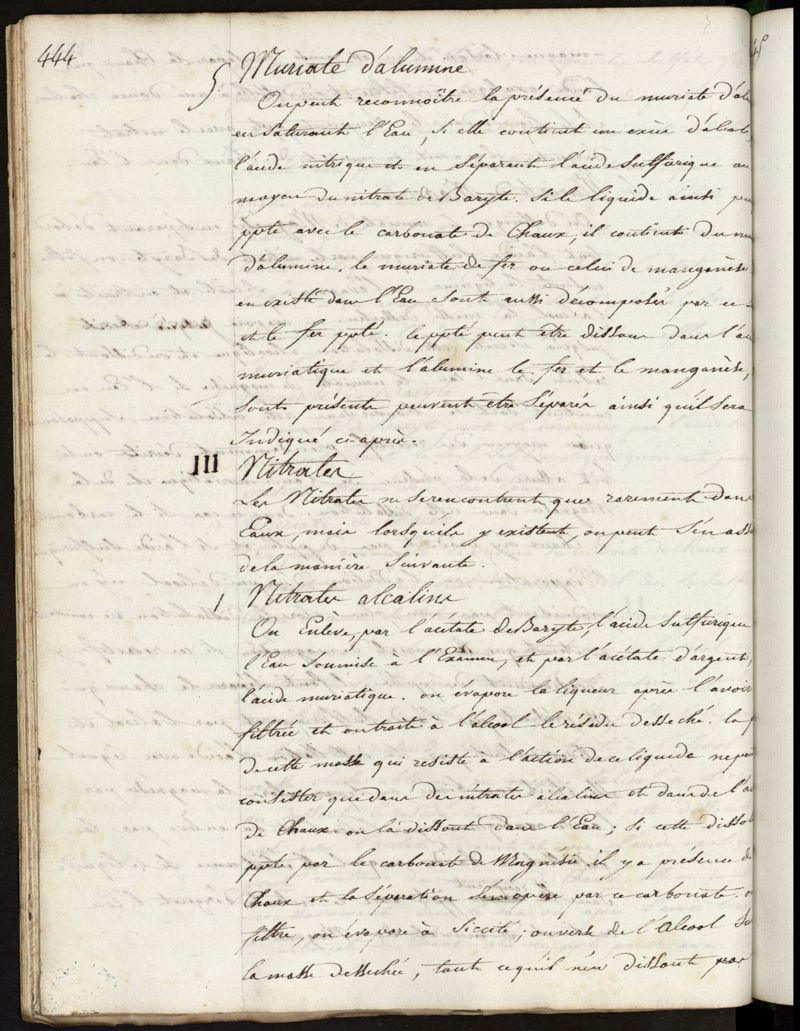 444
5. Muriate d'alumine
On peut reconnoitre la présence du muriate d'alu
en saturant l'Eau, si elle contient un exces d'alcali,
l'acide nitrique et en séparant l'acide sulfurique au
moyen du nitrate de Baryte. Si le liquide ainsi
ppte avec le carbonate de Chaux, il contient du mu
d'alumine. le muriate de fer ou celui de manganèse
en existe dans l'Eau sont aussi décomposés par ce
et le fer ppté. le ppté peut être dissous dans l'ac
muriatique et l'alumine le fer et le manganèse,
sont présents peuvent être séparés ainsi qu'il sera
Indiqué ci-après.
III Nitrates
Les Nitrates ne se rencontrent que rarement dans
Eaux, mais lorsqu'ils y existent, on peut s'en ass
de la manière suivante.
1 Nitrates alcalins
On Enlève, par l'acétate de Baryte, l'acide sulfurique
l'Eau soumise à l'Examen, et par l'acétate d'argent,
l'acide muriatique. on évapore la liqueur après l'avoir
filtrée et on traite à l'alcool le résidu desseché. la p
de cette masse qui resiste à l'action de ce liquide ne peu
consister que dans des nitrates alcalins et dans de l'ac
de Chaux on la dissout dans l'Eau; si cette dissol
ppte par le carbonate de Magnésie il y a présence de
Chaux et la séparation s'en opère par ce carbonate. on
filtre, on évapore à siccité; on verse de l'alcool su
la masse dessechée, tout ce qu'il n'en dissout pas